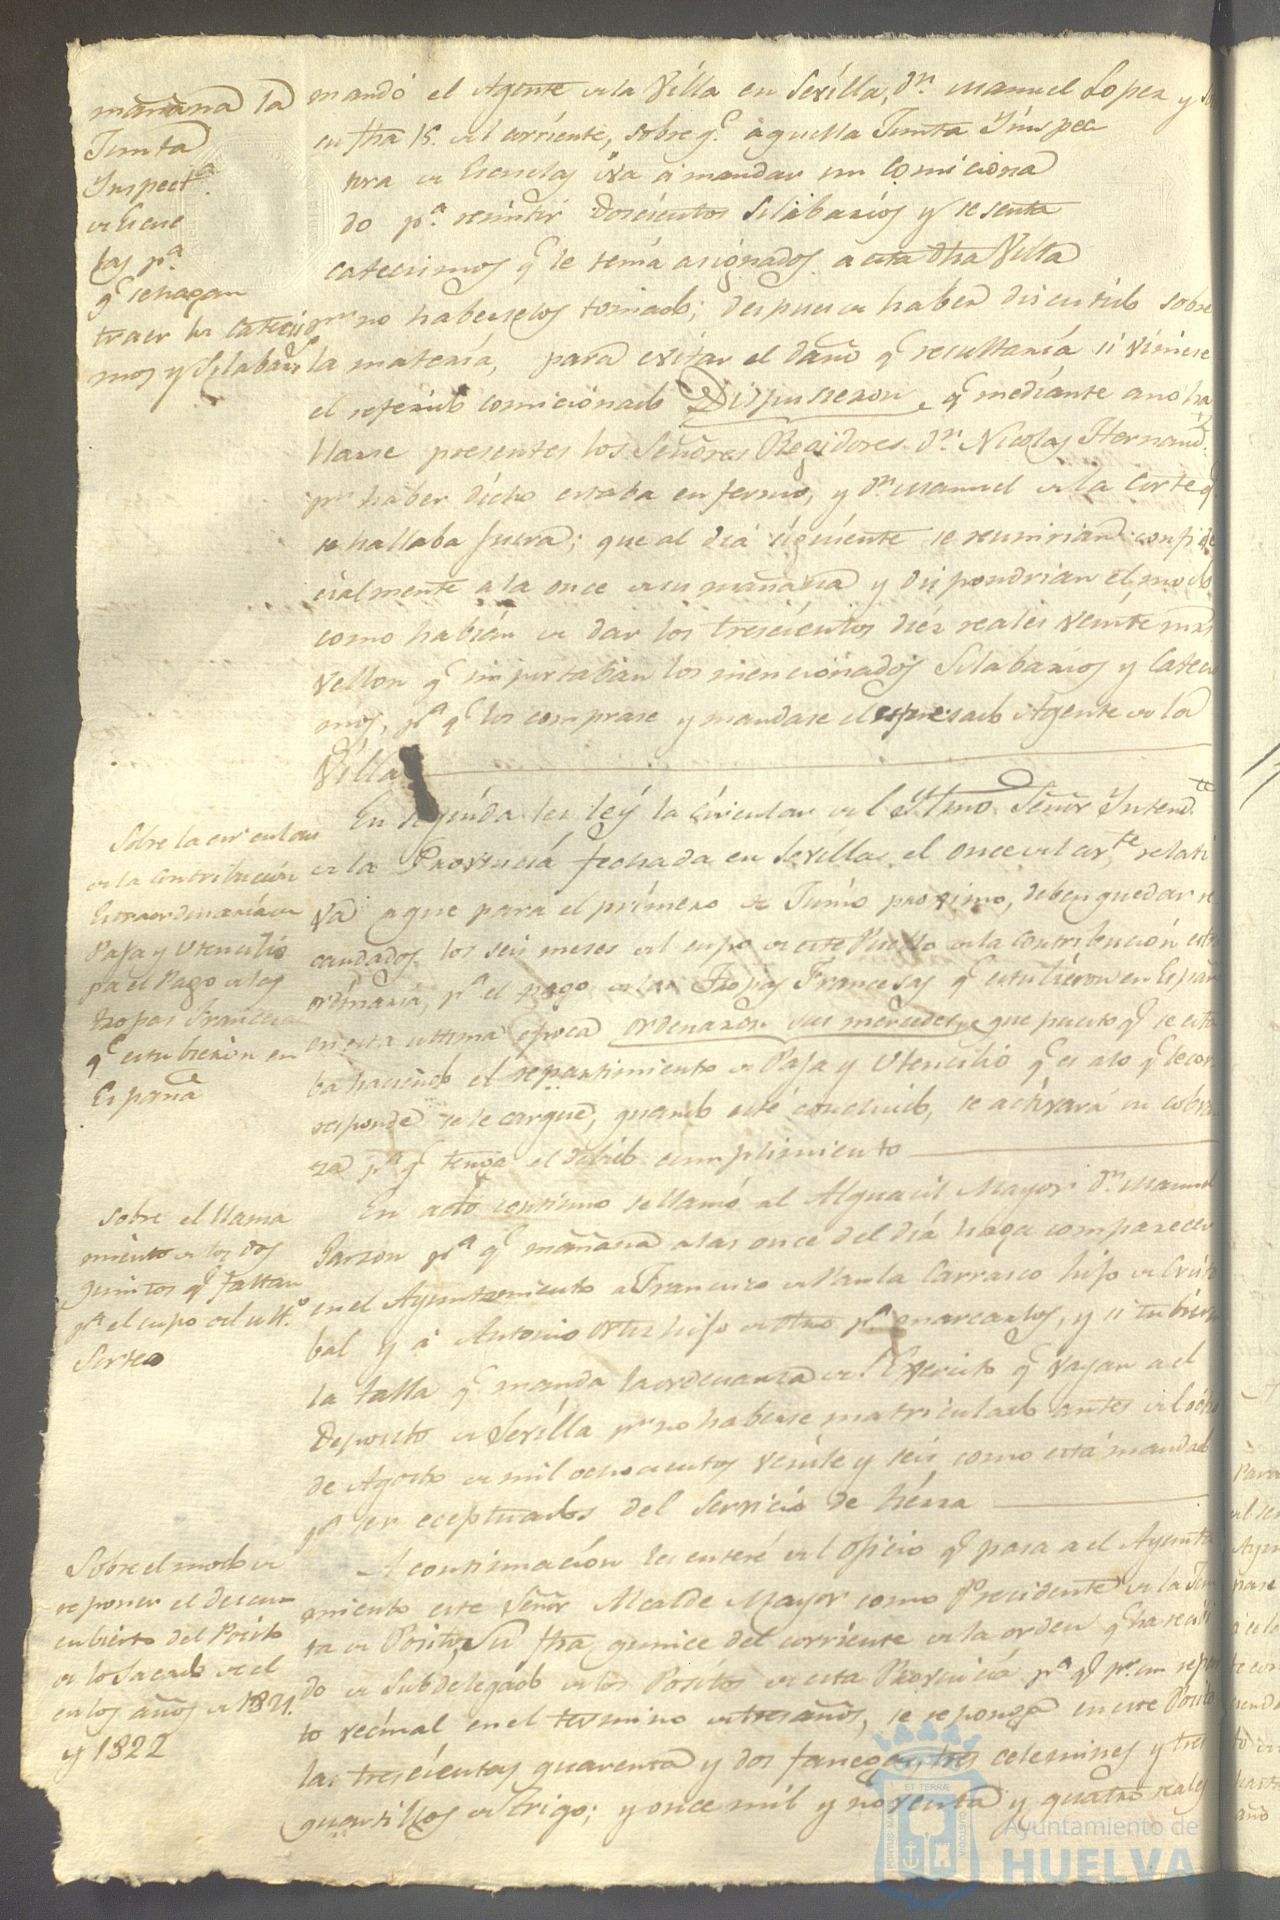 mañana la
Junta
Inspect.ª
de Escue
las p.ª
q.e se hagan
traer los Catecis
mos y Silabarios
mandó el Agente de la Villa en Sevilla, D.n Manuel Lopez y
en fha 15. del corriente, sobre q.e aquella Junta Inspec
tora de Escuelas iva á mandar un Comiciona
do p.ª remitir doscientos Silabarios y sesenta
catecismos q.e le tenia acignados a esta dha Villa
p.r no haberselos tomado; despues de haber discutido sobre
la materia, para evitar el daño q.e resultaria si viniese
el referido comicionado Dispusieron q.e mediante a no ha
llarse presentes los Señores Regidores D.n Nicolas Hernand.
p.r haber dicho estaba enfermo, y D.n Manuel de la Corte q.e
se hallaba fuera; que al dia siguiente se reunirian confide
cialmente a la once de su mañana y dispondrian el modo
como habian de dar los trescientos diez reales veinte mrs
vellon q.e importaban los mencionados Silabarios y Catecis
mos, p.ª q.e los comprase y mandase el espresado Agente de la
Villa
Sobre la circular
de la contribucion
Extraordinaria de
Paja y Utencilio
pa el Pago de las
tropas Francesas
q.e estubieron en
España
En seguida les leý la circular del Yltmo. Señor Yntend.te
de la Provincia fechada en Sevilla el once del cor.te relati
va a que para el primero de Junio proximo, deben quedar re
caudados los seis meses del cupo de este Pueblo de la contribucion estra
ordinaria, p.ª el pago de las Tropas Francesas q.e estubieron en España
en esta ultima epoca ordenaron sus mercedes que puesto q.e se esta
ba haciendo el repartimiento de Paja y Utencilio q.e es a lo q.e le cor
responde se le cargue, quando esté concluido, se activará su cobran
za p.ª q.e tenga el debido cumplimiento
Sobre el llama
miento de los dos
quintos q.e faltan
p.ª el cupo del ult.º
Sorteo
En acto continuo se llamó al Alguacil Mayor D.n Manuel
Garzon p.ª q.e mañana a las once del dia haga comparecer
en el Ayuntamiento a Francisco de Paula Carrasco hijo de Cristo
bal y á Antonio Ortiz hijo de Otro p.ª marcarlos, y si tubieren
la talla q.e manda la ordenanza del Exercito q.e vayan a el
Deposito de Sevilla p.r no haberse matriculado antes del ocho
de Agosto de mil ochocientos veinte y seis como está mandado
p.r ser eceptuados del Servicio de tierra
Sobre el modo de
reponer el descu
cubierto del Posito
de lo Sacado de el
en los años de 1821.
y 1822
A continuacion les enteré del oficio q.e pasa a el Ayunta
miento este Señor Alcalde Mayor como Precidente de la Jun
ta de Posito, Su fha quince del corriente de la orden q.e ha recivi
do de Subdelegado de los Positos de esta Provincia p.ª q.e p.r un repar
to vecinal en el termino de tres años, se reponga en este Posito
las trescientas quarenta y dos fanegas, tres celemines y tres
quartillos de trigo; y once mil y noventa y quatro reales
ET TERRÆ
Ayuntamiento de
HUELVA